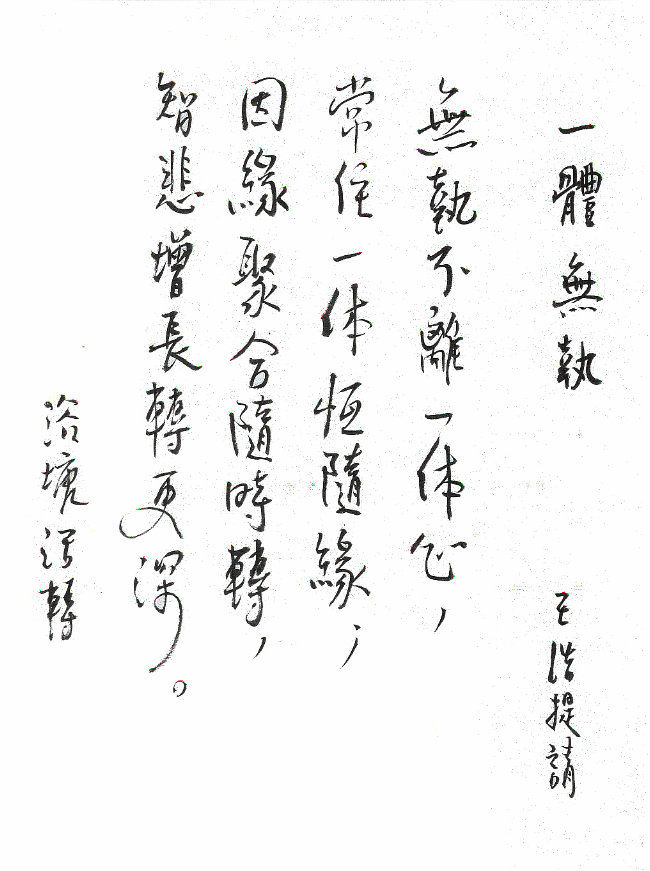 一體無執
王浩提請
無執不離一体心，
常住一体恒隨緣；
因緣聚合隨時轉，
智悲增長轉更深。
浴塘 轉